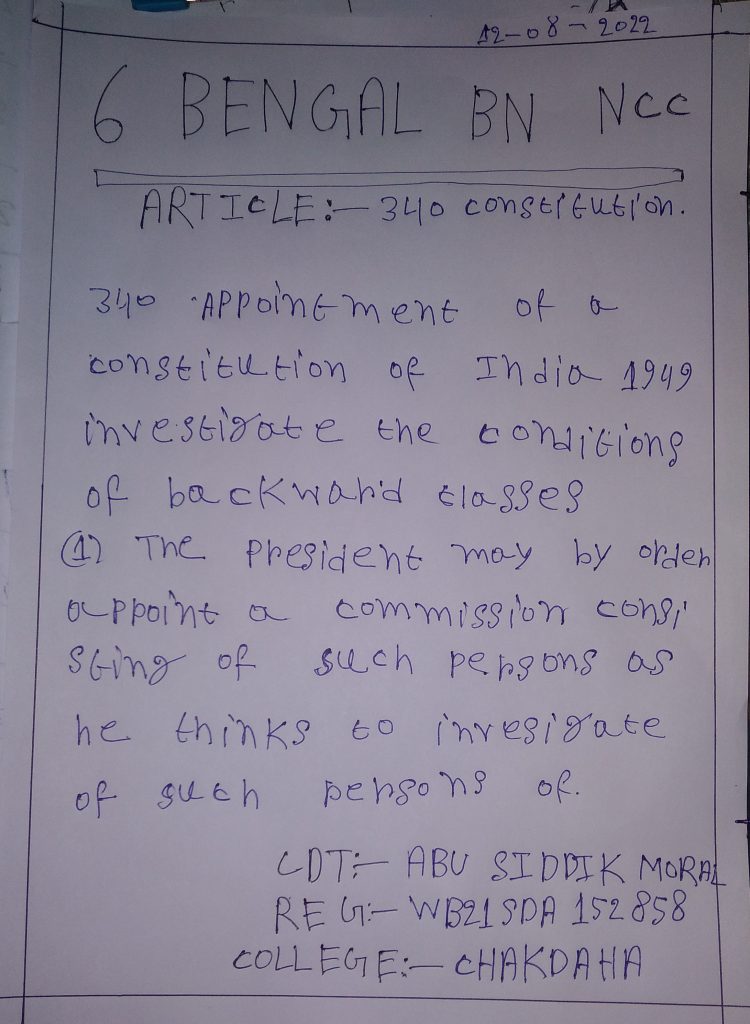 12-08-2022
6 BENGAL BN NCC
ARTICLE:- 340 constitution.
340 Appointment of a
constitution of India 1949
investigate the conditions
of backward classes
(1) The president may by order
appoint a commission consi
sting of such persons as
he thinks to invesigate
of such persons of.
CDT:- ABU SIDDIK MORAL
REG:- WB21SDA 152858
COLLEGE:- CHAKDAHA